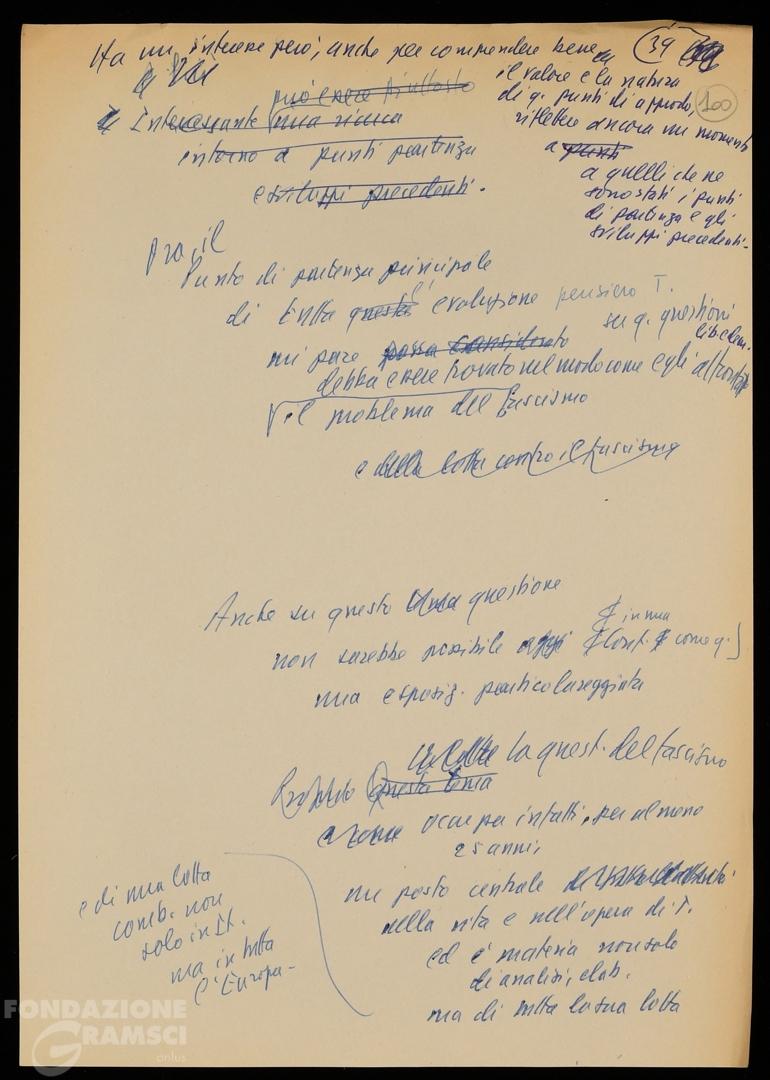 Ha un interesse però, anche per comprendere bene
39
100
il valore e la natura
di q. punti di approdo,
riflettere ancora un momento
a punti
a quelli che ne
sono stati i punti
di partenza e gli
sviluppi precedenti.
può essere piuttosto
Interessante una
intorno a punti partenza
e sviluppi precedenti.
Ora, il
Punto di partenza principale
di tutta questa l'evoluzione pensiero T.
su q. questioni
mi pare possa considerato
debba essere trovato nel modo come egli affronta
il problema del fascismo
e della lotta contro il fascismo
Anche su questo una questione
non sarebbe possibile oggi
in una
Conf. come q.
una esposiz. particolareggiata
la quest. del fascismo
Questo tema
occupa infatti, per almeno
25 anni,
un posto centrale
nella vita e nell'opera di T.
ed è materia non solo
di analisi, elab.
ma di tutta la sua lotta
e di una lotta
comb. non
solo in It.
ma in tutta
l'Europa -
FONDAZIONE
GRAMSCI
onlus